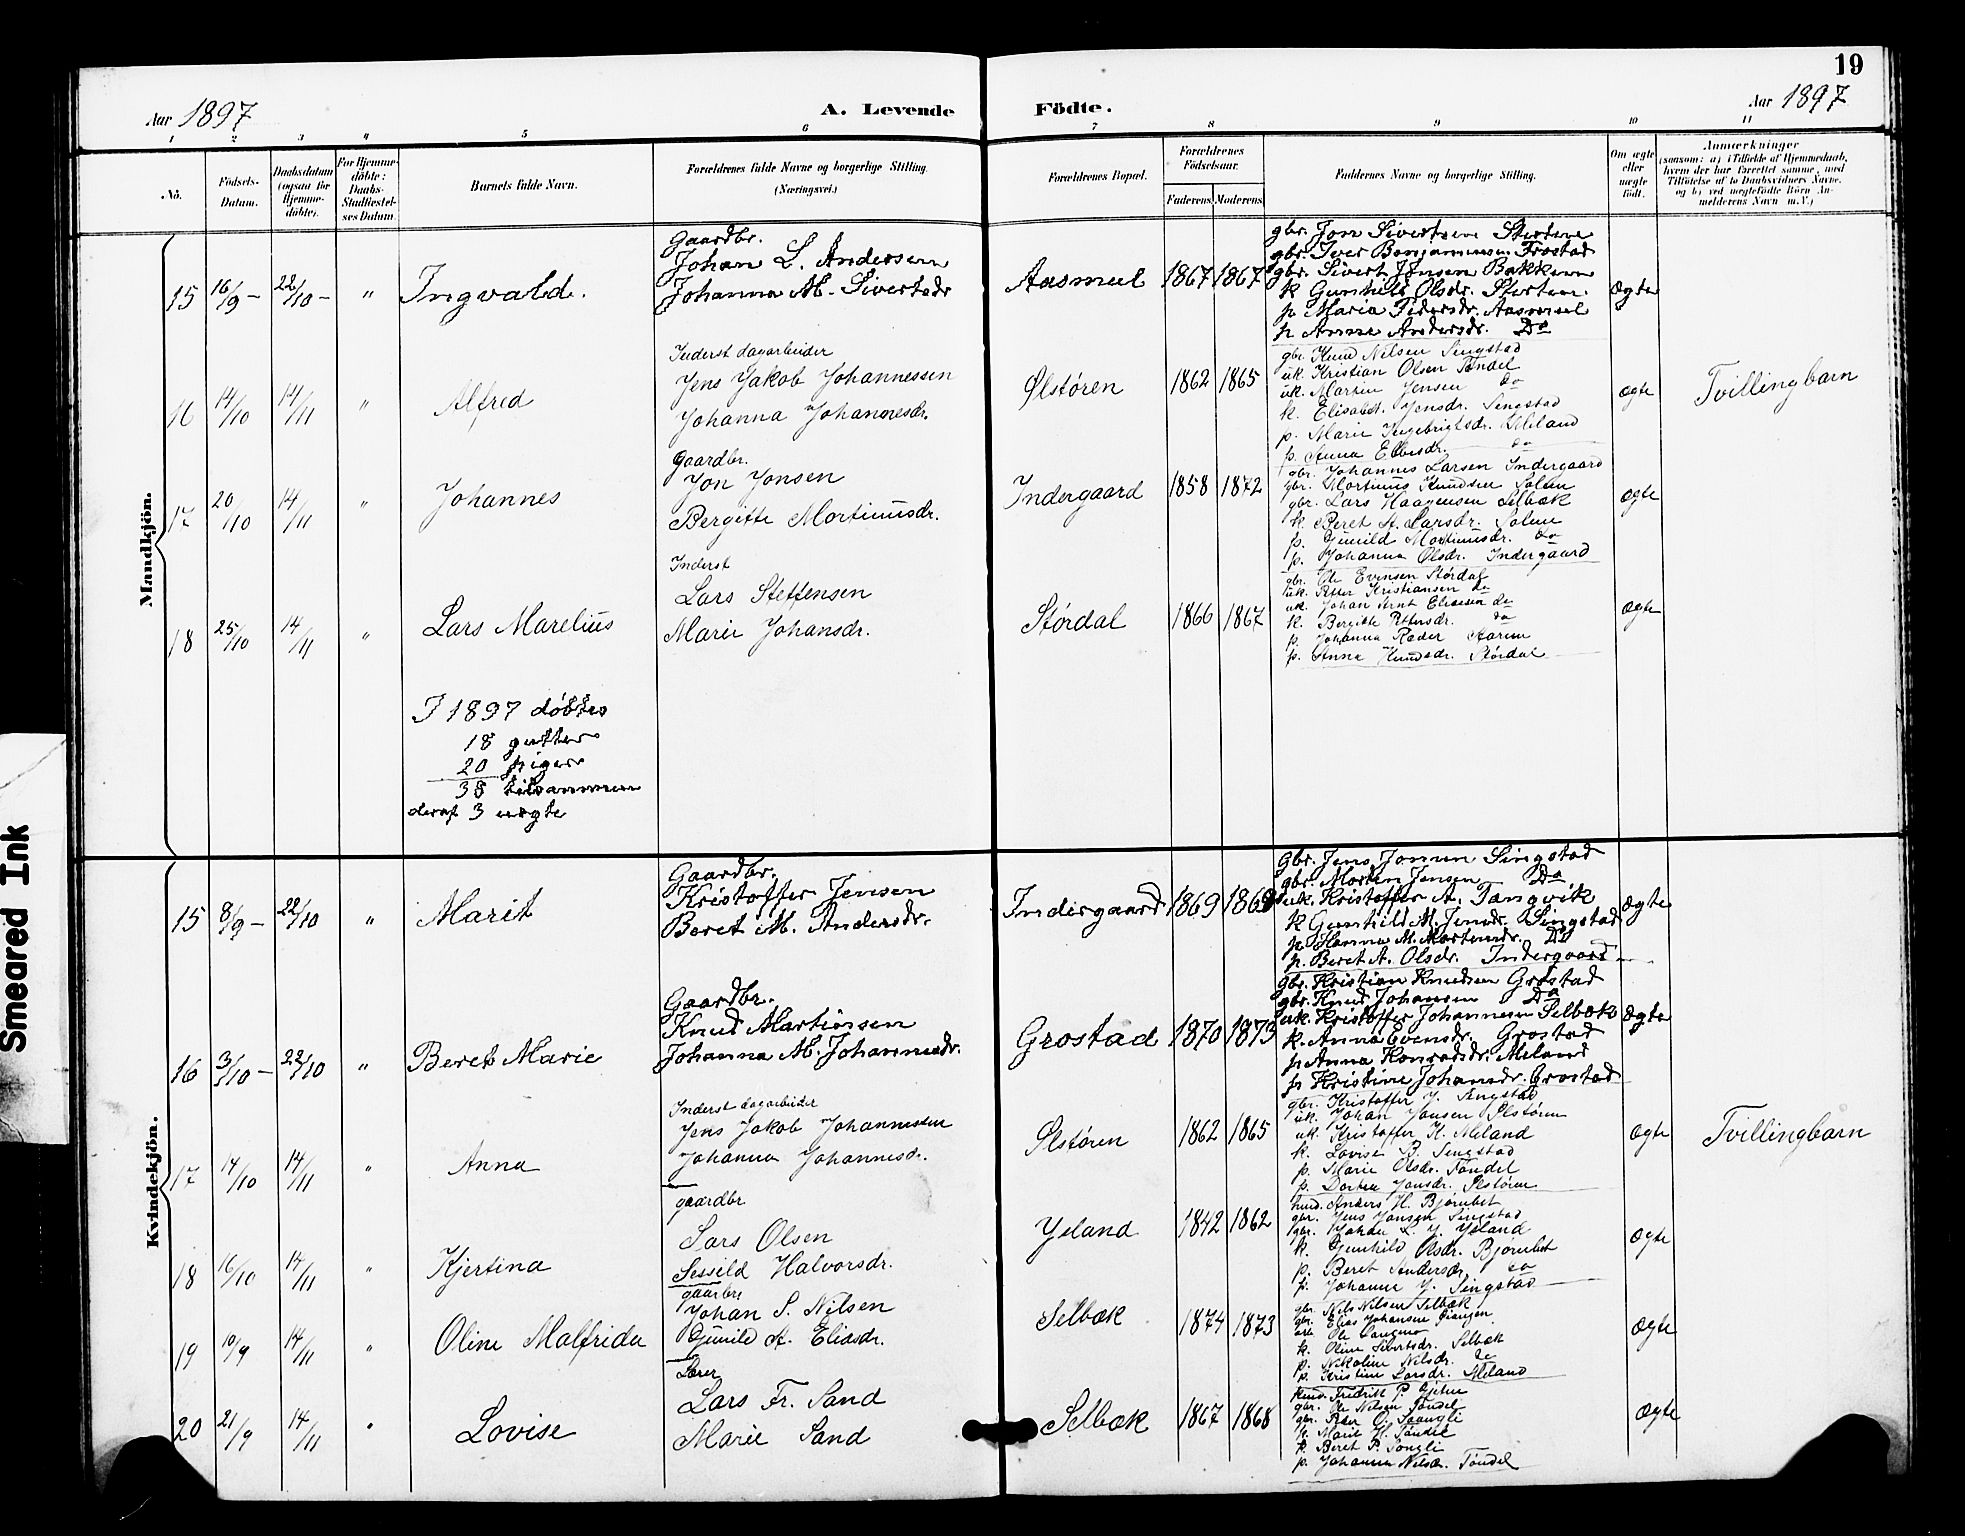 19
Aar 1897
A. Levende Födte.
Aar 1897
1 2 3 4 5 6 7 8 9 10 11
No.
Födsels-Datum.
Daabsdatum (ogsaa for Hjemme-döbte).
For Hjemme-döbte: Daabs-Stadfæstel-ses Datum.
Barnets fulde Navn.
Forældrenes fulde Navne og borgerlige Stilling. (Næringsvei.)
Forældrenes Bopæl.
Forældrenes Födselsaar.
Faderens Moderens
Faddernes Navne og borgerlige Stilling.
Om ægte eller uægte født.
Anmærkninger
(saasom: a) i Tilfælde af Hjemmedaab,
hvem der har forrettet samme, med
Tilføielse af to Daabsvidners Navne.
og b) ved uægtefödte Börn An-
melderens Navn m. V.)
Mandkjön.
15 16/9 – 22/10 – " Ingvald.
Gaardbr.
Johan L. Andersen
Johanna M. Sivertsdr
Aasmul 1867 1867
gbr. Jon Sivertsen Størtere
gbr. Iver Benjaminsen Frostad
gbr. Sivert Jonsen Bakken
k Gunhild Olsdr.
p Maria Pedersdr.
p Anne Andersdr. Do
ægte
16 14/10 14/11 " Alfred
Inderst dagarbeider
Jens Jakob Johannessen
Johanna Johannesdr.
Ølstøren 1862 1865
gbr. Knud Nilsen Singstad
uk. Kristian Olsen Tøndel
uk. Martin Jensen do
k. Elisabet. Jensdr. Singstad
p. Marie Ingebrigtsdr. Meland
p. Anna do
ægte
Tvillingbarn
17 20/10 14/11 " Johannes
Gaardbr.
Jon Jonsen
Bergitte Mortinusdr.
Indergaard 1858 1872
gbr. Johannes Larsen Indergaard
gbr. Mortinus Knudsen Solem
gbr. Lars Haagensen Selbæk
k. Beret A. Larsdr. Solem
p. Gunild Mortinusdr. do
p. Johanna Olsdr. Indergaard
ægte
18 25/10 14/11 " Lars Marelius
Inderst
Lars Steffensen
Marie Johansdr.
Størdal 1866 1867
gbr. Ole Evensen Størdal
uk. Petter Kristiansen do
uk. Johan Arnt Eliasen do
k. Bergitte Pettersdr. do
p. Johanna Røder
p. Anna Knudsdr. Størdal
ægte
I 1897 döbtes
18 gutter
20 piger
38 tilsammen
deraf 3 uægte
Kvindekjön.
15 8/9 – 22/10 " Marit
Gaardbr.
Kristoffer Jensen
Beret M. Andersdr.
Indergaard 1869
gbr. Jens Jonsen Singstad
gbr. Morten Jensen Do
uk. Kristoffer A. Tangvik
k Gunhild M. Jensdr. Singstad
p Hanna M. Mortensdr. Do
p. Beret A. Olsdr. Indergaard
ægte
16 3/10 – 22/10 " Beret Marie
Gaardbr.
Knud Martinsen
Johanna M. Johannesdr.
Grostad 1870 1873
gbr. Kristian Knudsen Grostad
gbr. Knud Johansen Do
uk. Kristoffer Johannesen Selbæk
k. Anna Evensdr. Grostad
p Anna Konradsdr. Meland
p Kristine Johansdr. Grostad
ægte
17 14/10 14/11 " Anna
Inderst dagarbeider
Jens Jakob Johannessen
Johanna Johannesdr.
Ølstøren 1862 1865
gbr. Kristoffer J. Singstad
uk. Johan Jansen Ølstøren
uk. Kristoffer K. Meland
k. Lovise B. Singstad
p. Marie Olsdr. Tøndel
p. Dortea Jansdr. Ølstøren
ægte
Tvillingbarn
18 16/10 14/11 " Kjertina
gaardbr
Lars Olsen
Sessild Halvorsdr.
Yeland 1842 1862
hmd. Anders H. Bjørnbet
gbr. Jens Jansen Singstad
gbr. Johan L. J. Yeland
k. Gunhild Olsdr. Bjørnbet
p. Beret Andersdr. do
p. Johanne J. Singstad
ægte
19 10/9 14/11 " Oline Malfrida
gaardbr
Johan S. Nilsen
Gunild A. Eliasdr.
Selbæk 1874 1873
gbr. Nils Nilsen Selbæk
gbr. Elias Johansen
Ole
k. Oline Sivertsdr. Selbæk
p. Nikoline Nilsdr. do
p. Kristine Larsdr. Meland
ægte
20 21/9 14/11 " Lovise
Lærer
Lars Fr. Sand
Marie Sand
Selbæk 1867 1868
Fredrik P.
gbr. Ole Nilsen Tøndel
gbr. Peder O. Saangli
k. Marie H. Tøndel
k. Beret P. Songli
p. Johanna Nilsdr. Tøndel
ægte
Smeared Ink